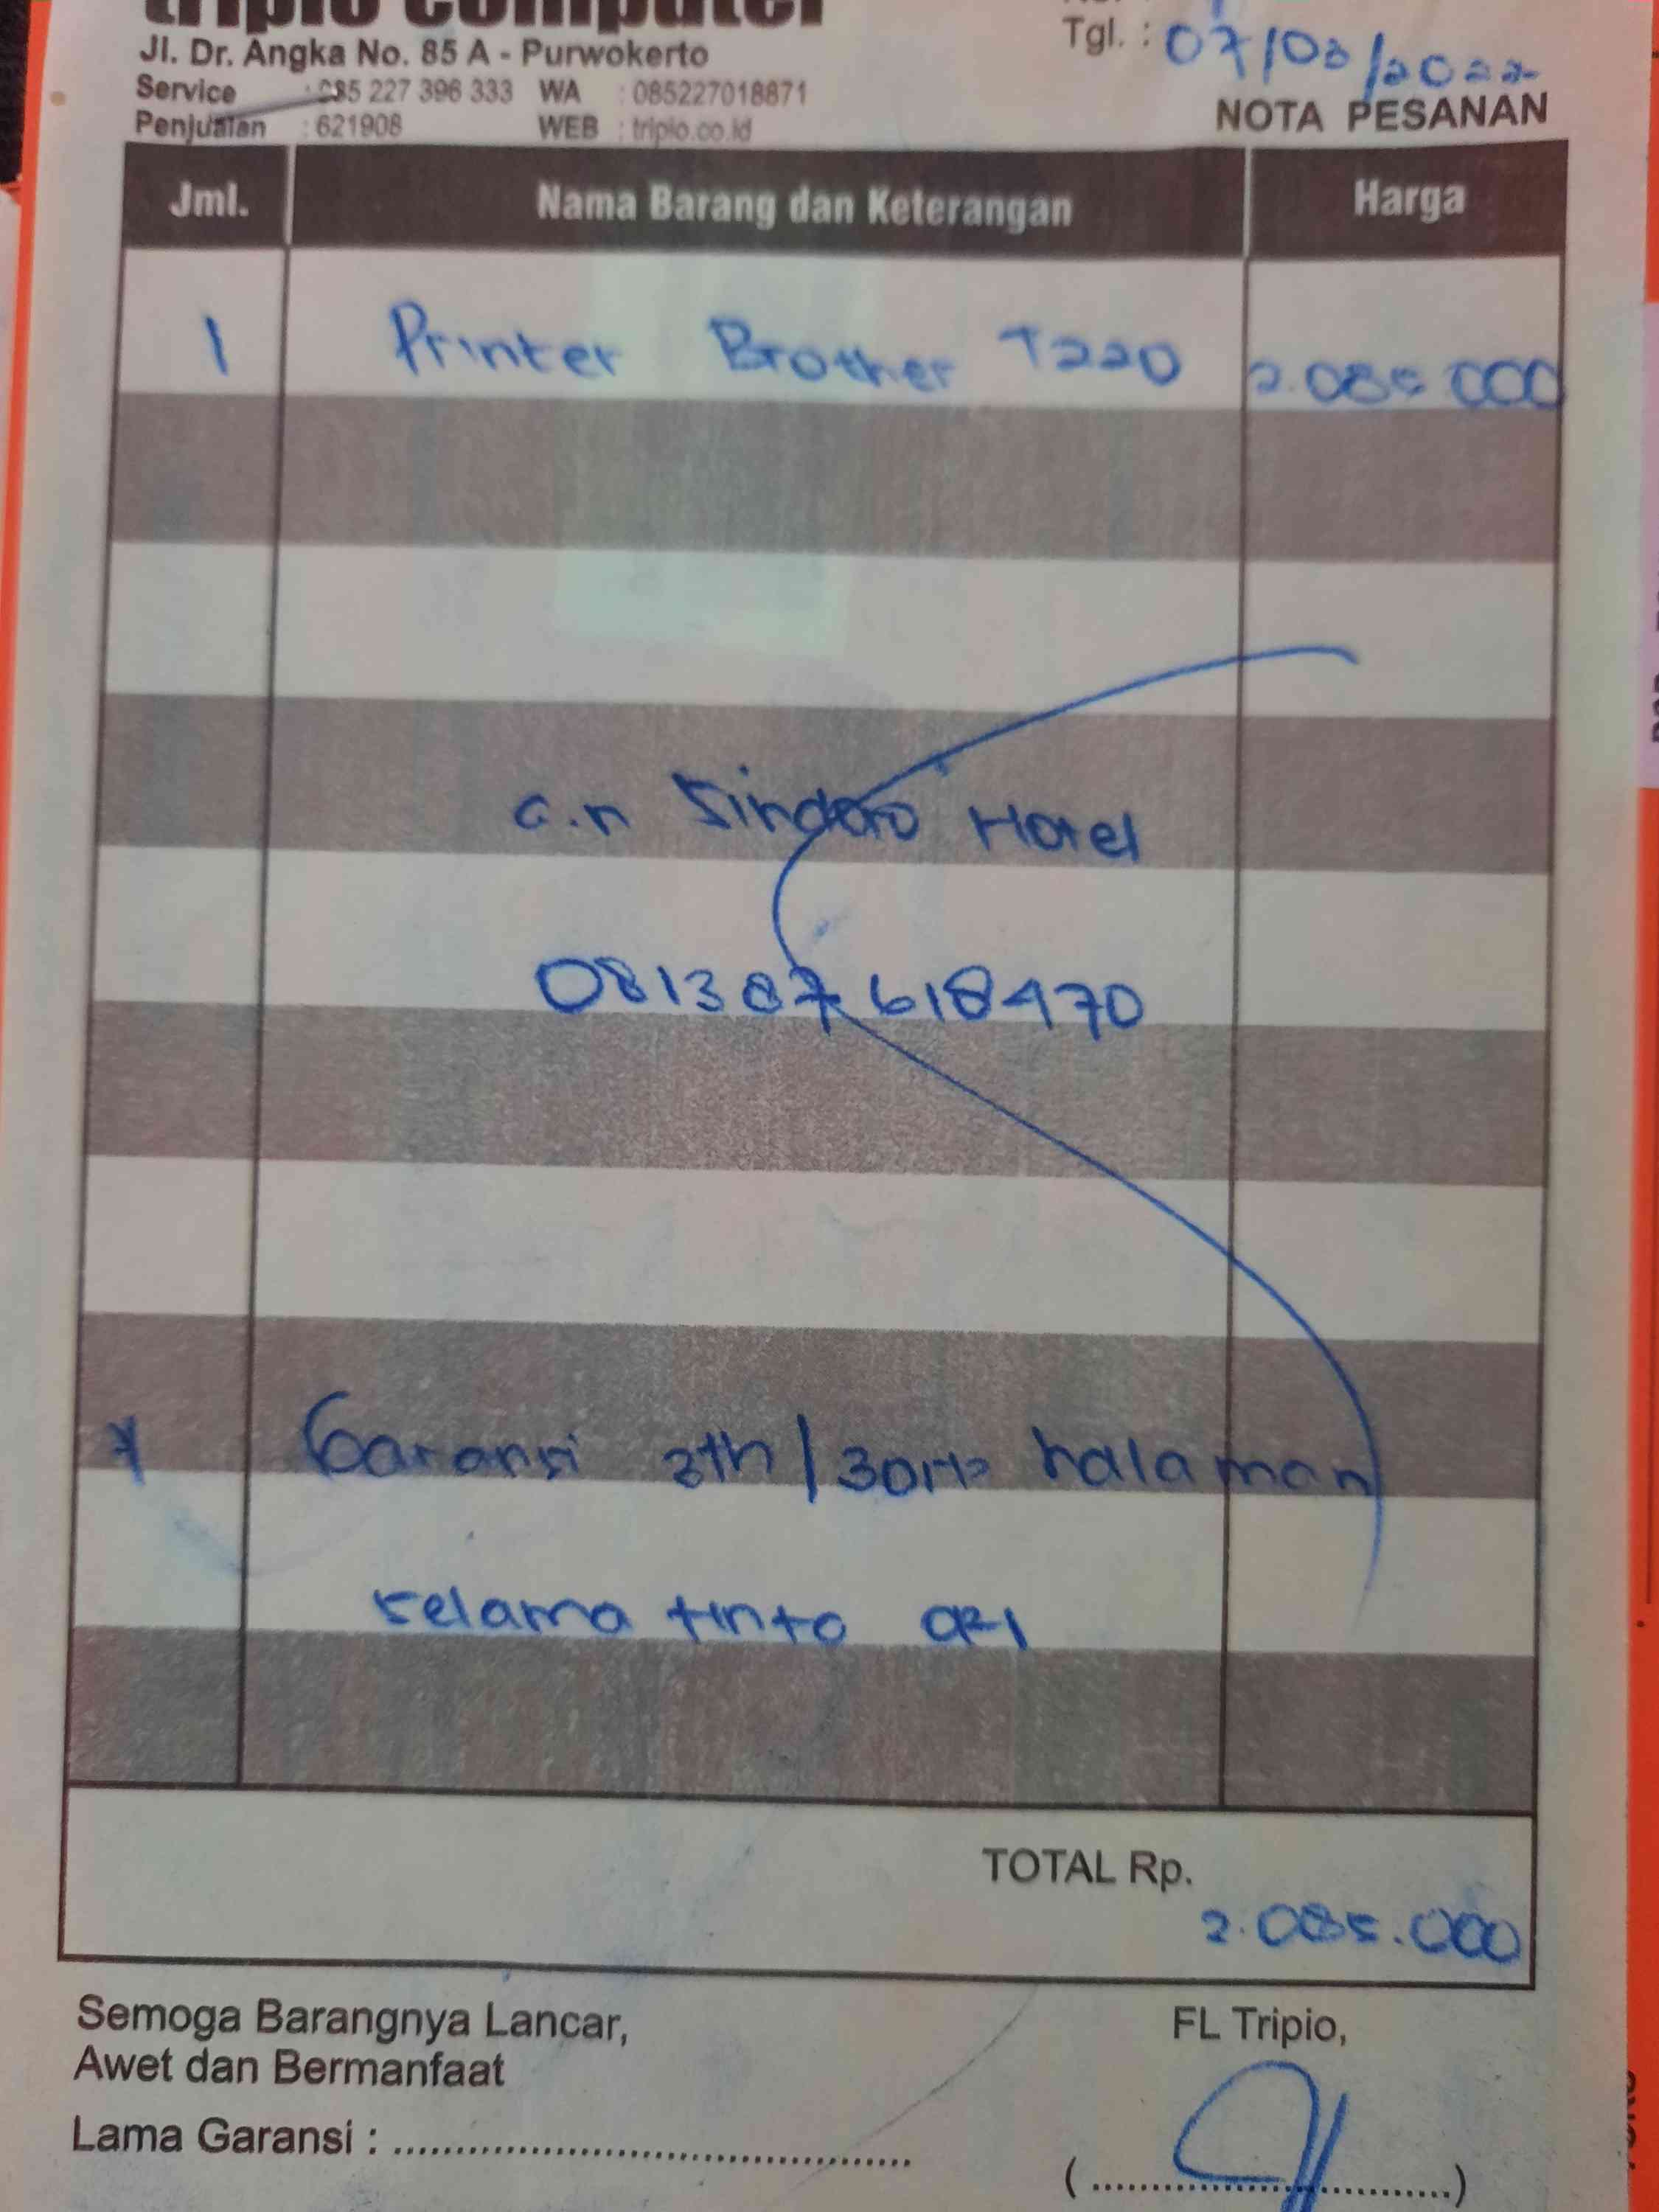 tripio computer
Jl. Dr. Angka No. 85 A - Purwokerto
Service : 085 227 396 333 WA : 085227018871
Penjualan : 621908 WEB : tripio.co.id
Tgl. : 07/03/2022
NOTA PESANAN
Jml. Nama Barang dan Keterangan Harga
1 Printer Brother T220 2.085.000
a.n Sindoro Hotel
081387618470
* Garansi 3th/30rb halaman
selama tinta ori
TOTAL Rp.
2.085.000
Semoga Barangnya Lancar,
Awet dan Bermanfaat
FL Tripio,
Lama Garansi : ........................................
(................................)